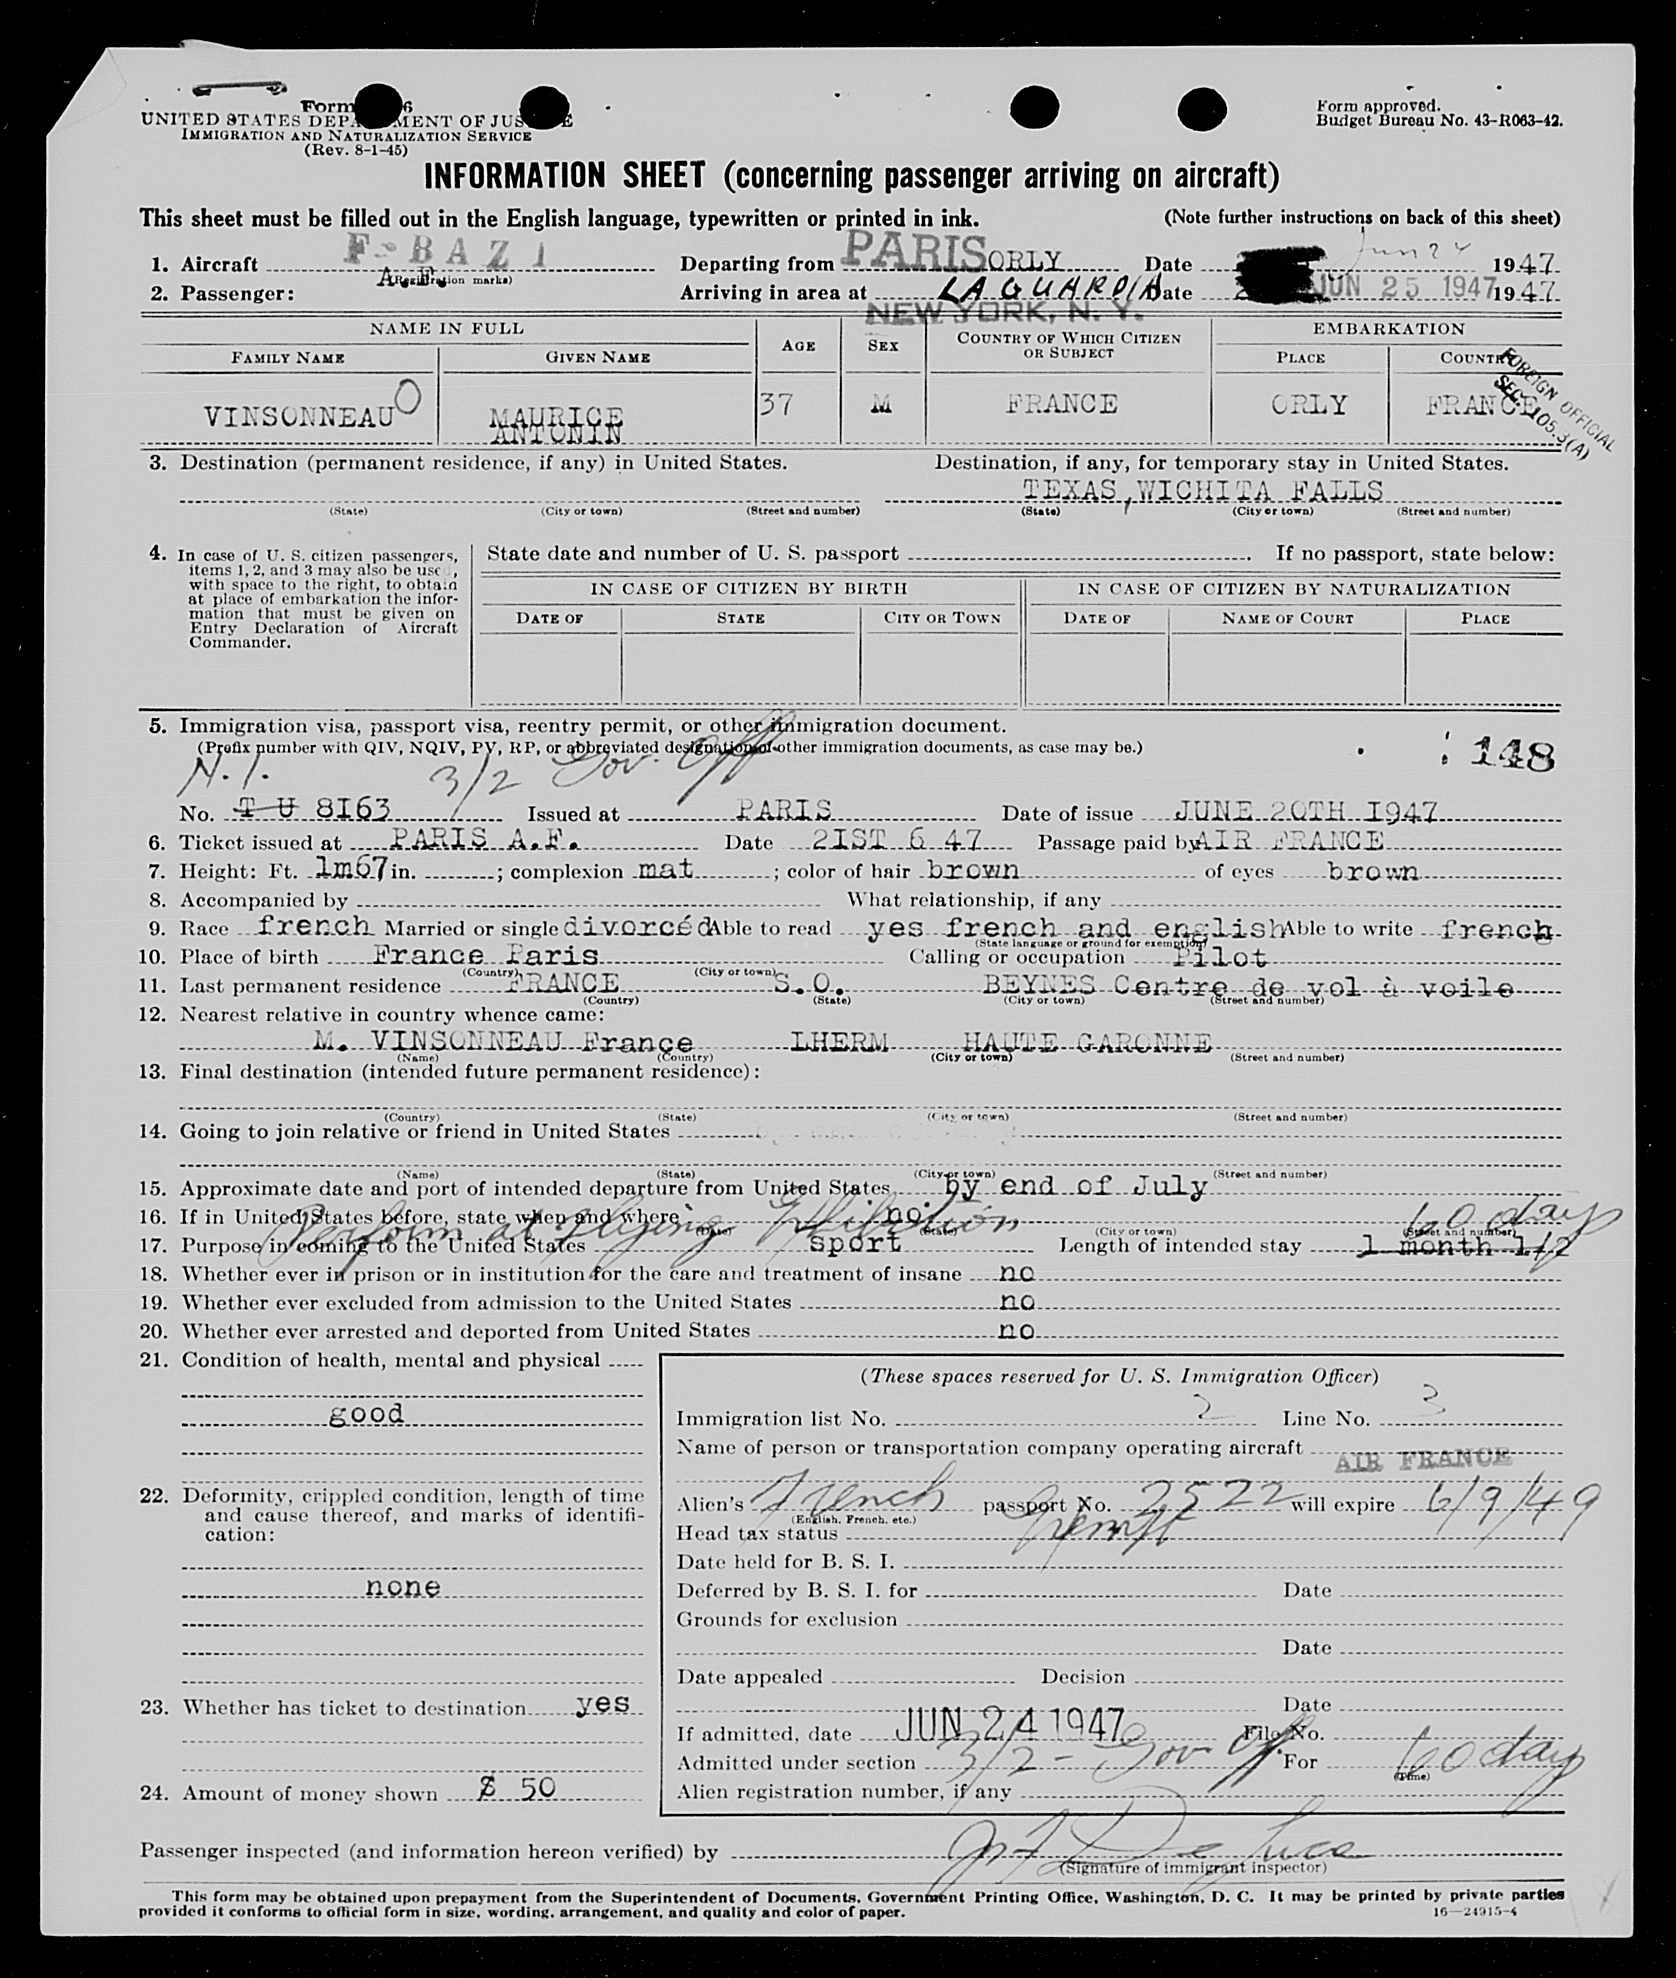 Form 6
UNITED STATES DEPARTMENT OF JUSTICE
IMMIGRATION AND NATURALIZATION SERVICE
(Rev. 8-1-45)
Form approved.
Budget Bureau No. 43-R063-42.
INFORMATION SHEET (concerning passenger arriving on aircraft)
This sheet must be filled out in the English language, typewritten or printed in ink. (Note further instructions on back of this sheet)
1. Aircraft F-BAZI Departing from PARIS ORLY Date Jun 24 1947
A.F. (Registration marks)
2. Passenger: Arriving in area at LA GUARDIA Date JUN 25 1947 1947
NEW YORK, N. Y.
NAME IN FULL AGE SEX COUNTRY OF WHICH CITIZEN OR SUBJECT EMBARKATION
FAMILY NAME GIVEN NAME PLACE COUNTRY
FOREIGN OFFICIAL
SEC. 105.3(A)
VINSONNEAU O MAURICE ANTONIN 37 M FRANCE ORLY FRANCE
3. Destination (permanent residence, if any) in United States. Destination, if any, for temporary stay in United States.
TEXAS, WICHITA FALLS
(State) (City or town) (Street and number) (State) (City or town) (Street and number)
4. In case of U. S. citizen passengers, items 1, 2, and 3 may also be used, with space to the right, to obtain at place of embarkation the information that must be given on Entry Declaration of Aircraft Commander.
State date and number of U. S. passport . If no passport, state below:
IN CASE OF CITIZEN BY BIRTH IN CASE OF CITIZEN BY NATURALIZATION
DATE OF STATE CITY OR TOWN DATE OF NAME OF COURT PLACE
5. Immigration visa, passport visa, reentry permit, or other immigration document.
(Prefix number with QIV, NQIV, PV, RP, or abbreviated designation of other immigration documents, as case may be.)
148
N.I. 3/2 Gov. Off
No. T U 8163 Issued at PARIS Date of issue JUNE 20TH 1947
6. Ticket issued at PARIS A.F. Date 21ST 6 47 Passage paid by AIR FRANCE
7. Height: Ft. 1m67 in. ; complexion mat ; color of hair brown of eyes brown
8. Accompanied by What relationship, if any
9. Race french Married or single divorcéd Able to read yes french and english Able to write french
(State language or ground for exemption)
10. Place of birth France Paris Calling or occupation Pilot
(Country) (City or town)
11. Last permanent residence FRANCE S.O. BEYNES Centre de vol à voile
(Country) (State) (City or town) (Street and number)
12. Nearest relative in country whence came:
M. VINSONNEAU France LHERM HAUTE GARONNE
(Name) (Country) (City or town) (Street and number)
13. Final destination (intended future permanent residence):
(Country) (State) (City or town) (Street and number)
14. Going to join relative or friend in United States
(Name) (State) (City or town) (Street and number)
15. Approximate date and port of intended departure from United States by end of July
16. If in United States before, state when and where no
(Date) (State) (City or town) (Street and number)
Perform at flying Exhibition 60 days
17. Purpose in coming to the United States sport Length of intended stay 1 month 1/2
18. Whether ever in prison or in institution for the care and treatment of insane no
19. Whether ever excluded from admission to the United States no
20. Whether ever arrested and deported from United States no
21. Condition of health, mental and physical
good
22. Deformity, crippled condition, length of time and cause thereof, and marks of identification:
none
23. Whether has ticket to destination yes
24. Amount of money shown $ 50
(These spaces reserved for U. S. Immigration Officer)
Immigration list No. 2 Line No. 3
Name of person or transportation company operating aircraft
AIR FRANCE
Alien's French passport No. 2522 will expire 6/9/49
(English, French, etc.)
Head tax status Exempt
Date held for B. S. I.
Deferred by B. S. I. for Date
Grounds for exclusion
Date
Date appealed Decision
Date
If admitted, date JUN 24 1947 File No.
Admitted under section 3/2 - Gov Off For 60 days
(Time)
Alien registration number, if any
Passenger inspected (and information hereon verified) by De Luca
(Signature of immigrant inspector)
This form may be obtained upon prepayment from the Superintendent of Documents, Government Printing Office, Washington, D. C. It may be printed by private parties
provided it conforms to official form in size, wording, arrangement, and quality and color of paper. 16—24915-4